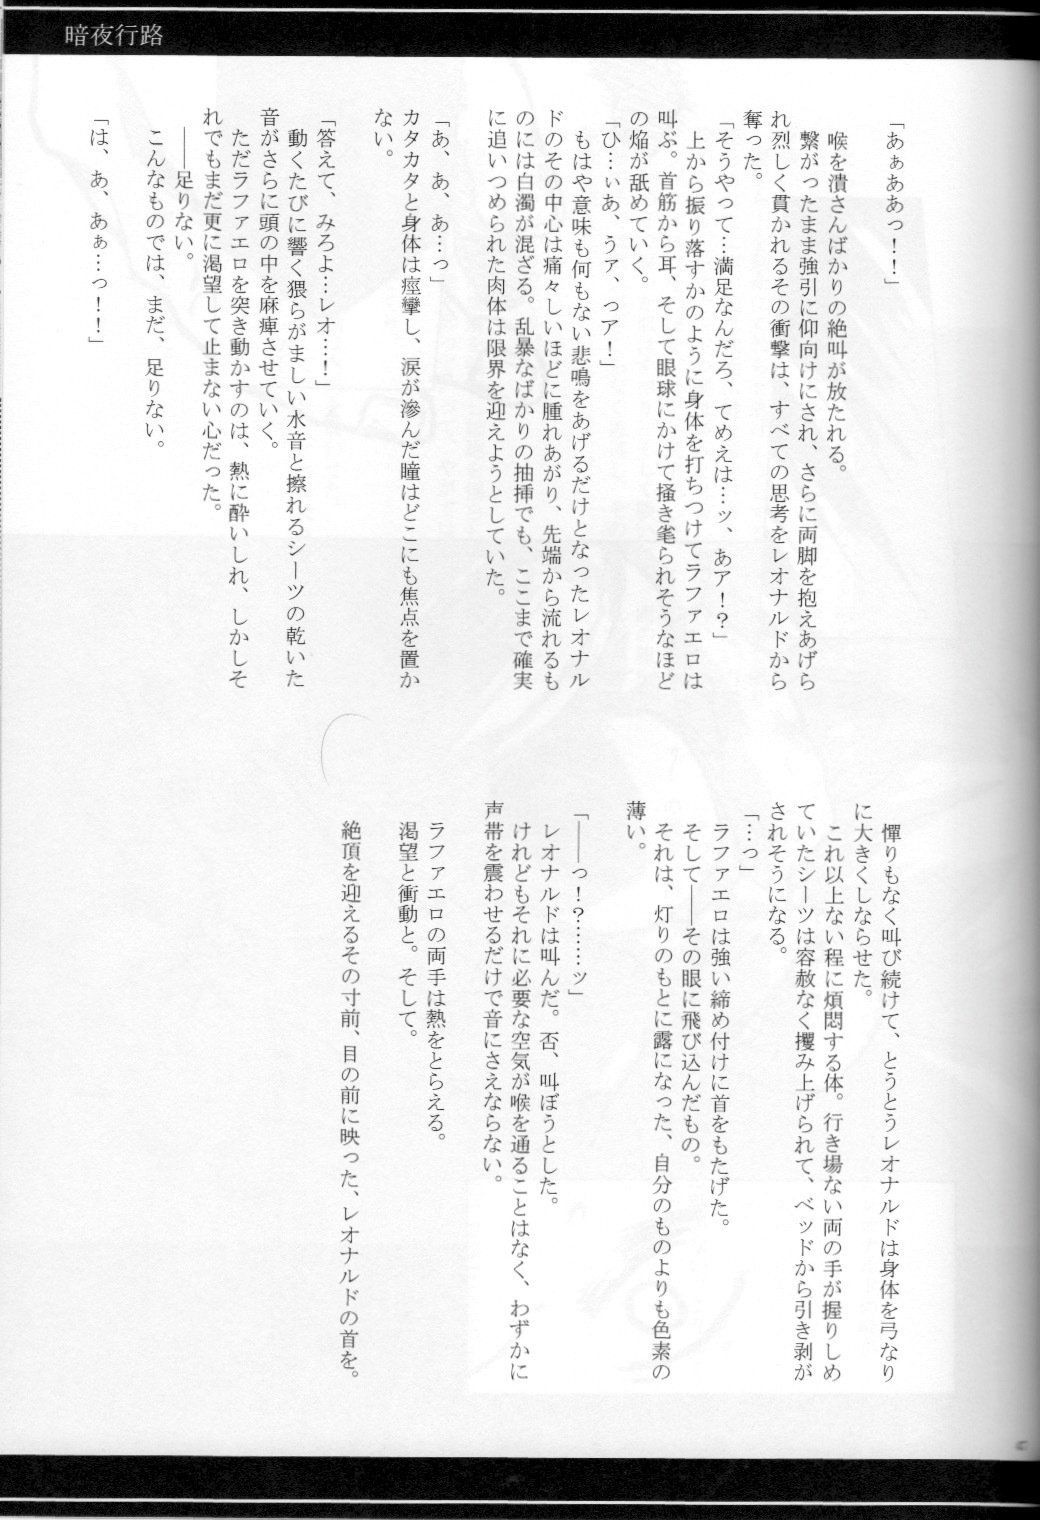 暗夜行路
「あぁああっ！！」
喉を潰さんばかりの絶叫が放たれる。
繋がったまま強引に仰向けにされ、さらに両脚を抱えあげら
れ烈しく貫かれるその衝撃は、すべての思考をレオナルドから
奪った。
「そうやって…満足なんだろ、てめえは…ッ、あア！？」
上から振り落すかのように身体を打ちつけてラファエロは
叫ぶ。首筋から耳、そして眼球にかけて掻き毟られそうなほど
の焔が舐めていく。
「ひ…ぃあ、うァ、っア！」
もはや意味も何もない悲鳴をあげるだけとなったレオナル
ドのその中心は痛々しいほどに腫れあがり、先端から流れるも
のには白濁が混ざる。乱暴なばかりの抽挿でも、ここまで確実
に追いつめられた肉体は限界を迎えようとしていた。
「あ、あ、あ…っ」
カタカタと身体は痙攣し、涙が滲んだ瞳はどこにも焦点を置か
ない。
「答えて、みろよ…レオ…！」
動くたびに響く猥らがましい水音と擦れるシーツの乾いた
音がさらに頭の中を麻痺させていく。
ただラファエロを突き動かすのは、熱に酔いしれ、しかしそ
れでもまだ更に渇望して止まない心だった。
――足りない。
こんなものでは、まだ、足りない。
「は、あ、あぁ…っ！！」
憚りもなく叫び続けて、とうとうレオナルドは身体を弓なり
に大きくしならせた。
これ以上ない程に煩悶する体。行き場ない両の手が握りしめ
ていたシーツは容赦なく攫み上げられて、ベッドから引き剥が
されそうになる。
「…っ」
ラファエロは強い締め付けに首をもたげた。
そして――その眼に飛び込んだもの。
それは、灯りのもとに露になった、自分のものよりも色素の
薄い。
「――っ！？……ッ」
レオナルドは叫んだ。否、叫ぼうとした。
けれどもそれに必要な空気が喉を通ることはなく、わずかに
声帯を震わせるだけで音にさえならない。
ラファエロの両手は熱をとらえる。
渇望と衝動と。そして。
絶頂を迎えるその寸前、目の前に映った、レオナルドの首を。